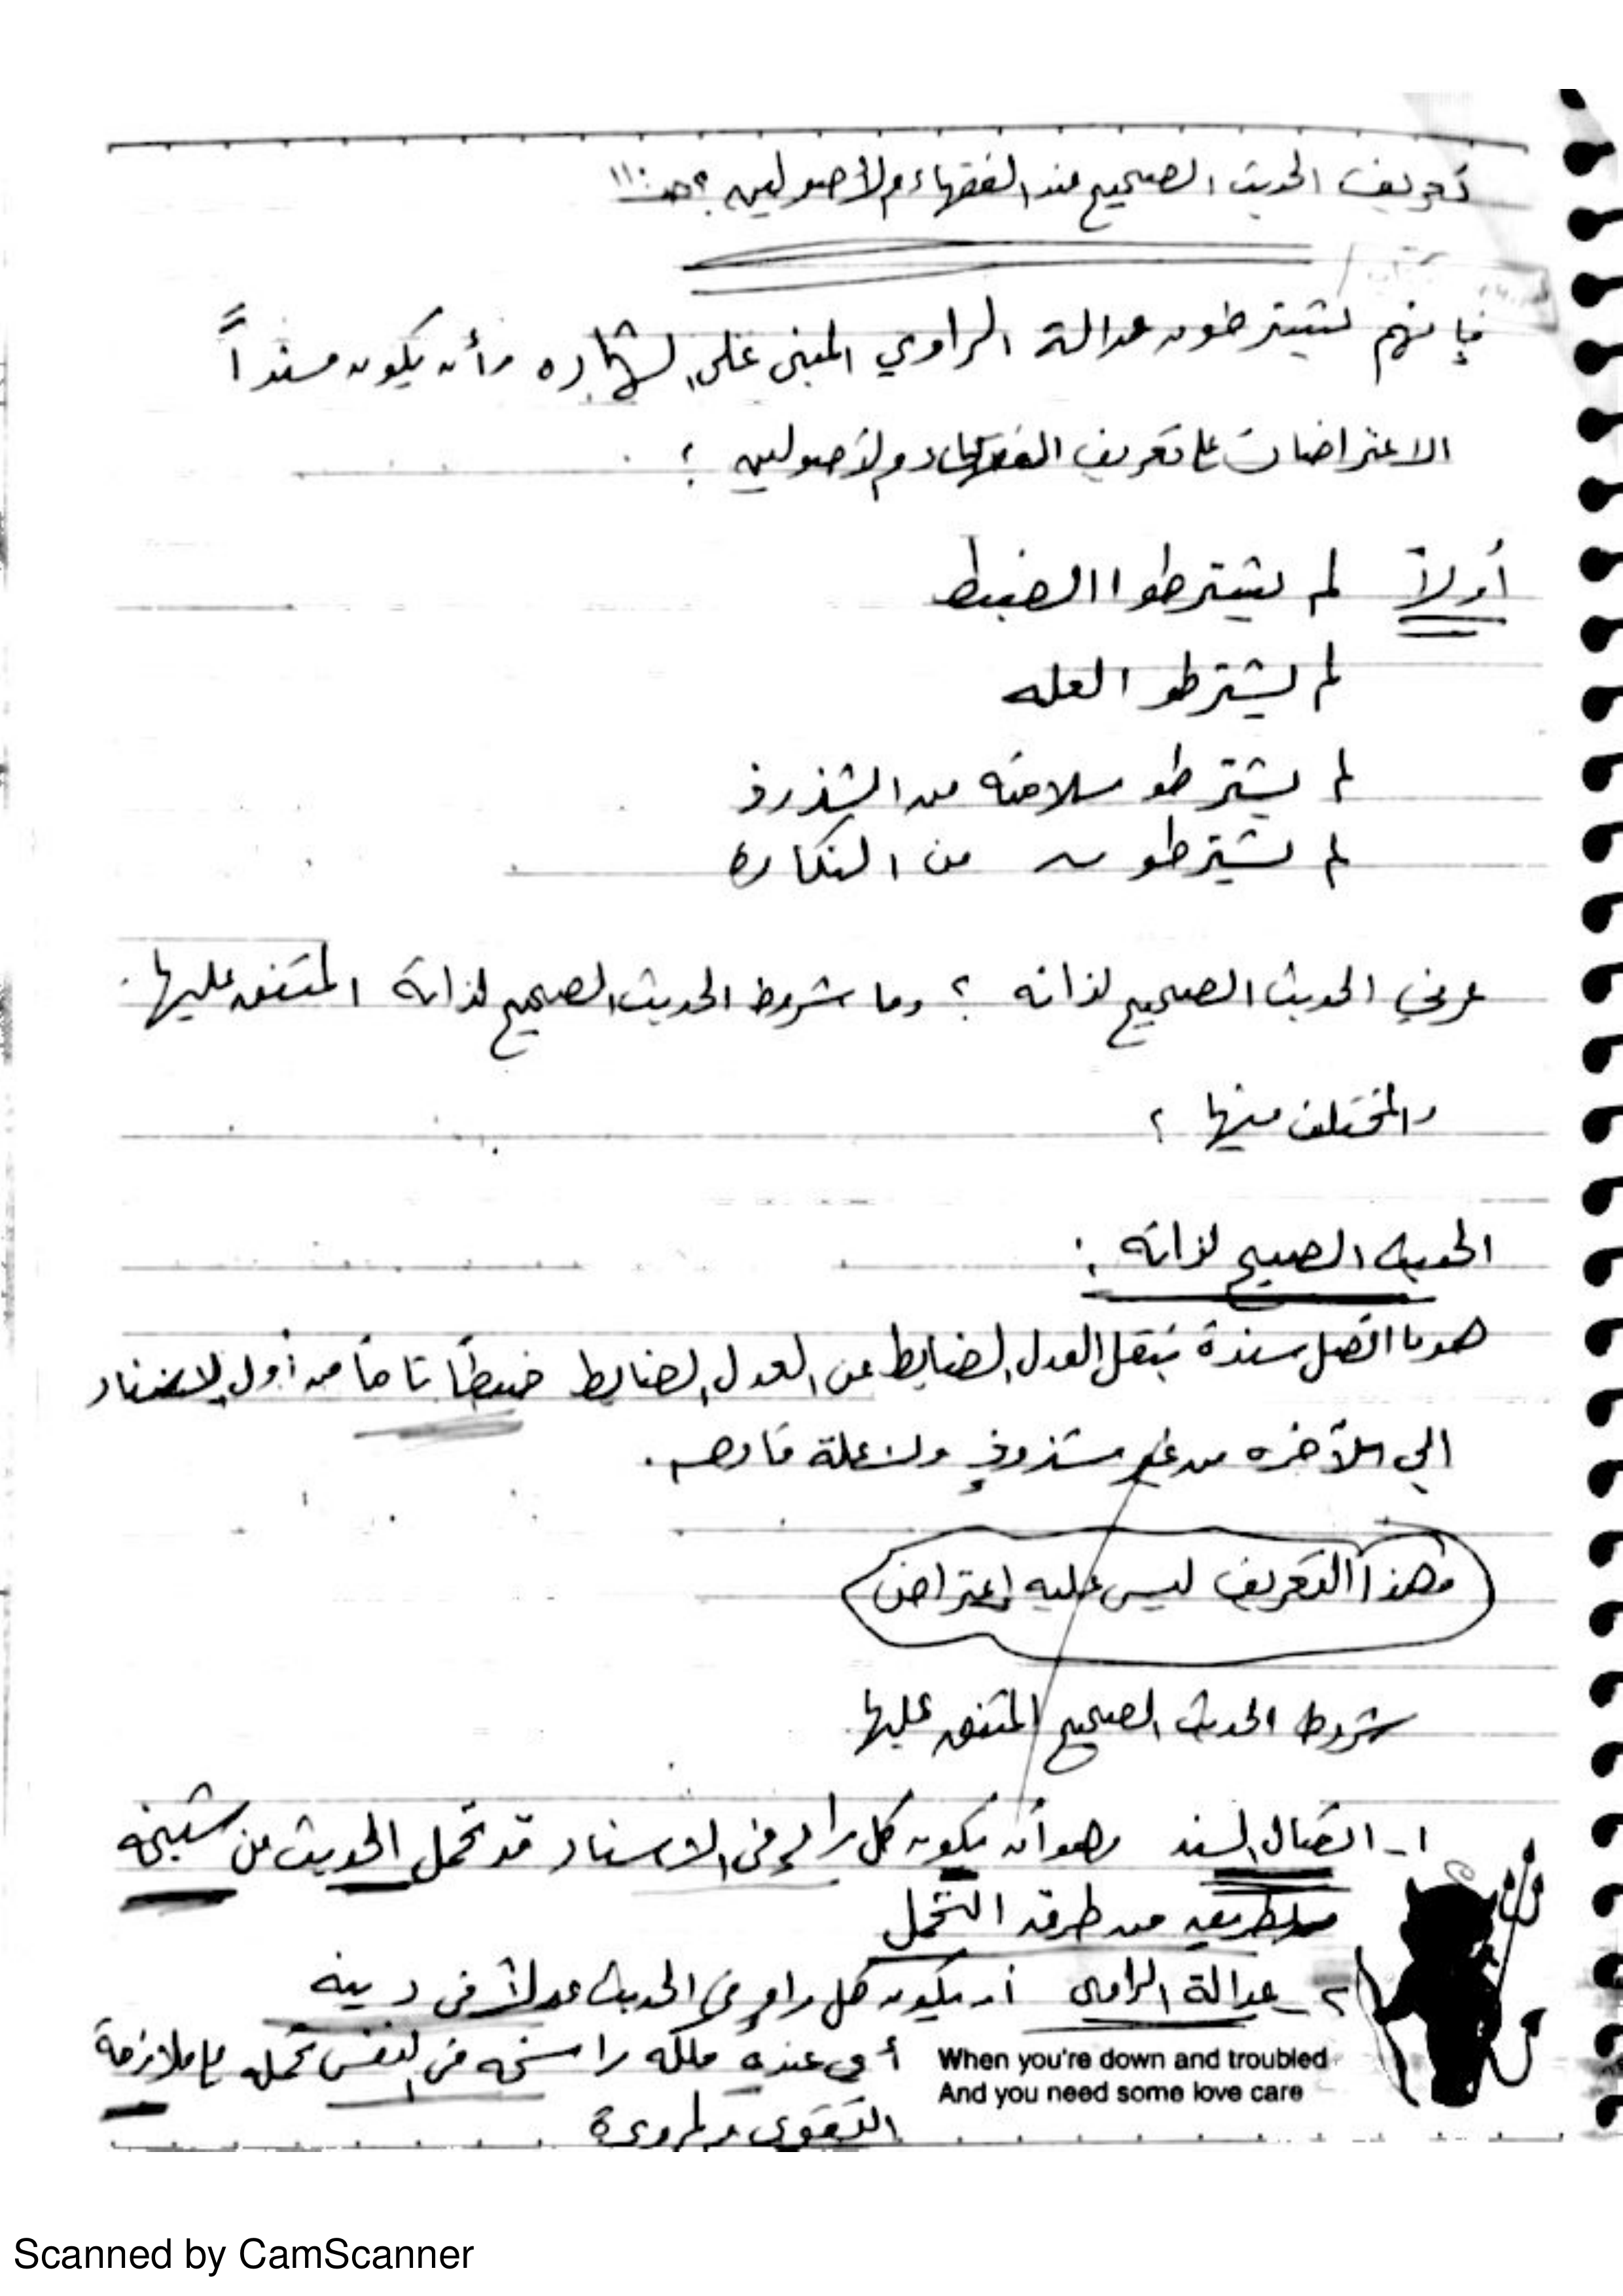 تعريف الحديث الصحيح عند الفقهاء والأصوليين ؟ صـ ١١٠
فإنهم يشترطون عدالة الراوي المبني على الشهاده وأن يكون مسنداً
الاعتراضات على تعريف الفقهاء والأصوليين ؟
أولاً لم يشترطوا الضبط
لم يشترطو العله
لم يشترطو سلامته من الشذوذ
لم يشترطون من النكاره
عرفي الحديث الصحيح لذاته ؟ وما شروط الحديث الصحيح لذاته المتفق عليها
والمختلف فيها ؟
الحديث الصحيح لذاته :
هو ما اتصل سنده بنقل العدل الضابط عن العدل الضابط ضبطاً تاماً من أول الاسناد
الي الآخره من غير شذوذٍ ولا علة قادحه .
وهذا التعريف ليس عليه اعتراض
شروط الحديث الصحيح المتفق عليها
١- اتصال السند وهو أن يكون كل راوٍ في الاسناد قد تحمل الحديث من شيخه
بطريقه من طرق التحمل
٢- عدالة الراوى أن يكون كل راوٍ في الحديث عدلاً في دينه
أي عنده ملكه راسخه في النفس تحمله على ملازمة
التقوى والمروءة
When you're down and troubled
And you need some love care
Scanned by CamScanner